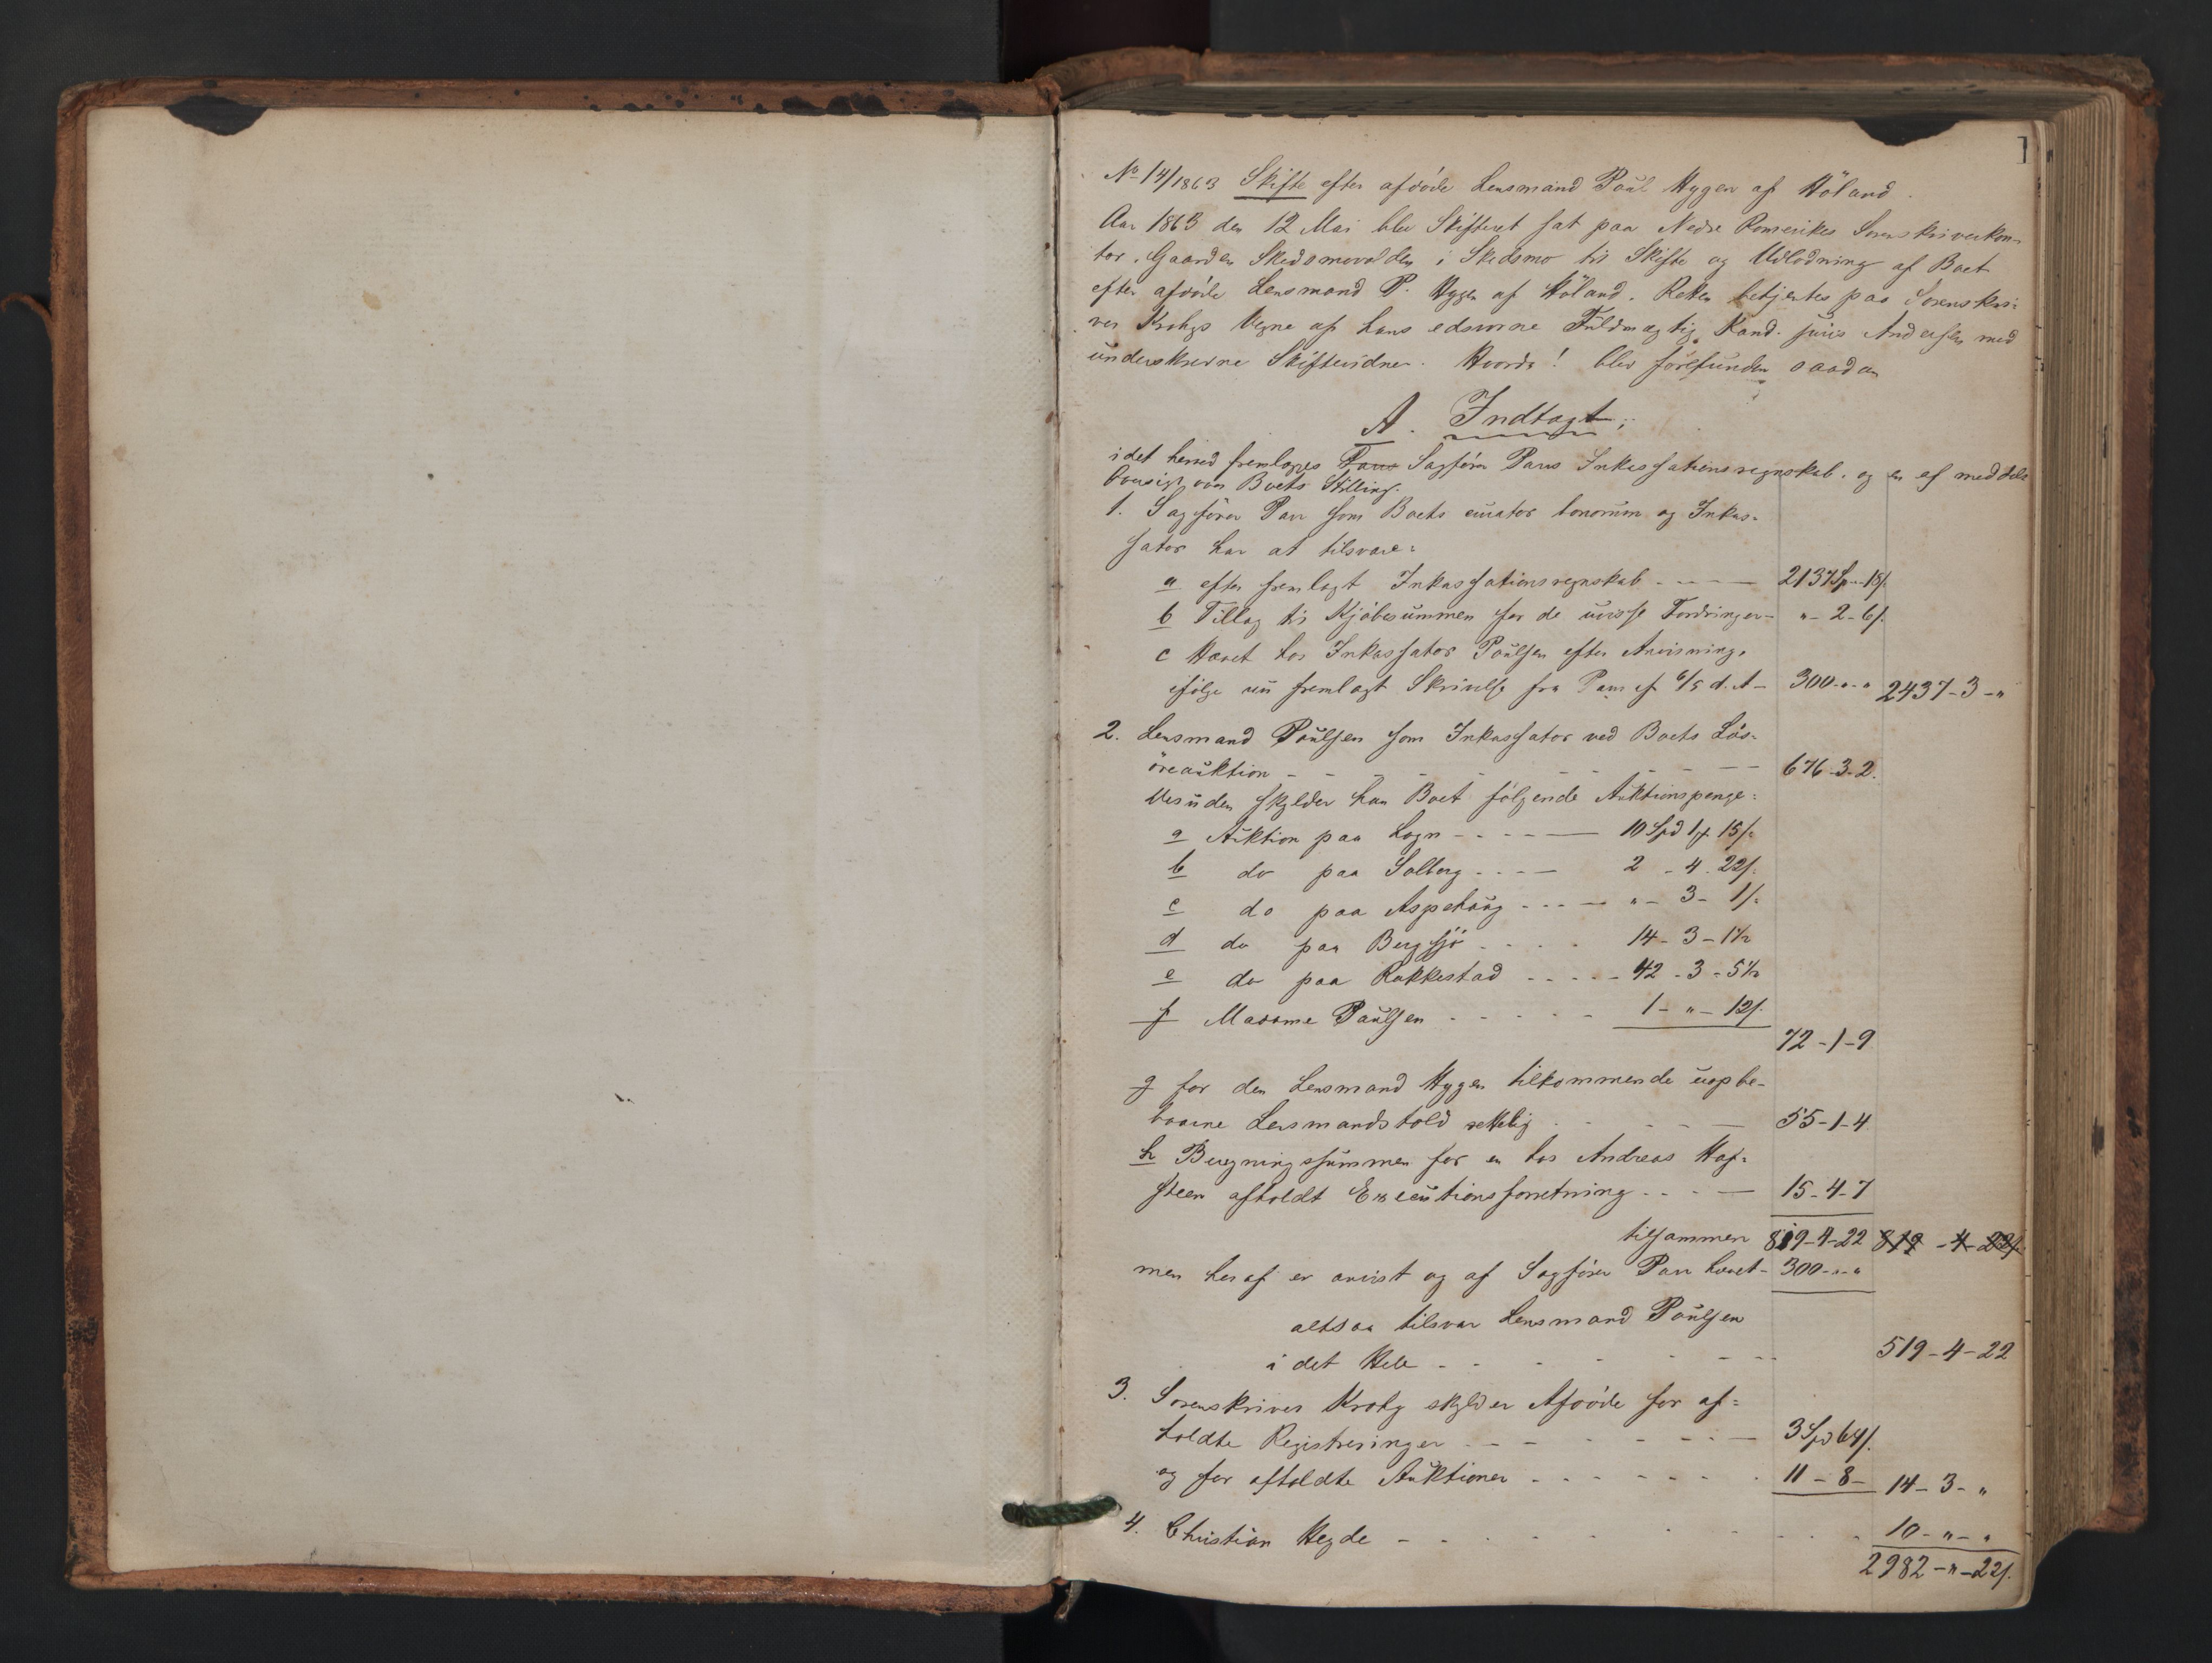 1
No 14/1863 Skifte efter afdöde Lensmand Paul Hygen af Höland.
Aar 1863 den 12 Mai blev Skifteret sat paa Nedre Romerikes Sorenskriverkon-
tor, Gaarden Skedsmovolden i Skedsmo til Skifte og Udlodning af Boet
efter afdöde Lensmand P. Hygen af Höland. Retten betjentes paa Sorenskri-
ver Krohgs Vegne af hans edsvorne Fuldmægtig, Kand. juris Andersen med
underskrevne Skiftevidner. Hvorda! blev forefunden saadan
A. Indtægt;
idet herved fremlagdes Paus Sagförer Paus Inkassationsregnskab, og en af meddelt
Oversigt over Boets Stilling.
1. Sagförer Pau som Boets curator bonorum og Inkas-
sator har at tilsvare:
a efter fremlagt Inkassationsregnskab - - - - 2137 Sp - - 18/.
b Tillæg til Kjöbesummen for de uvisse Fordringer - " - 2 - 6/.
c Hævet hos Inkassator Paulsen efter Anvisning,
ifölge nu fremlagt Skrivelse fra Paus af 6/5 d. A - 300 - " - " 2437 - 3 - "
2. Lensmand Paulsen som Inkassator ved Boets Lös-
öreauktion - - - - - - 676 - 3 - 2.
Desuden skylder han Boet fölgende Auktionspenge:
a Auktion paa Logn - - - - 10 Spd 1 15/.
b do paa Solberg - - - - 2 - 4 - 22/.
c do paa Aspehaug - - - - " - 3 - 1/.
d do paa Bergsjö - - - - 14 - 3 - 1 1/2
e do paa Rakkestad - - - - 42 - 3 - 5 1/2
f Madame Paulsen - - - - 1 - " - 12/.
72 - 1 - 9
g for den Lensmand Hygen tilkommende uopbe-
baarne Lensmandstold - - - - 55 - 1 - 4
h Beregningssummen for en hos Andreas Haf-
steen afholdt Executionsforretning - - - - 15 - 4 - 7
tilsammen 819 - 4 - 22 819 - 4 - 22/.
men heraf er anvist og af Sagförer Pau hævet - 300 - " - "
altsaa tilsvar Lensmand Paulsen
i det Hele - - - - - - 519 - 4 - 22
3. Sorenskriver Krohg skylder Afdöde for af-
holdte Registreringer - - - - - 3 Spd 64/.
og for afholdte Auktioner - - - - - 11 - 8 - 14 - 3 - "
4. Christian Hegde - - - - - - 10 - " - "
2982 - " - 22/.